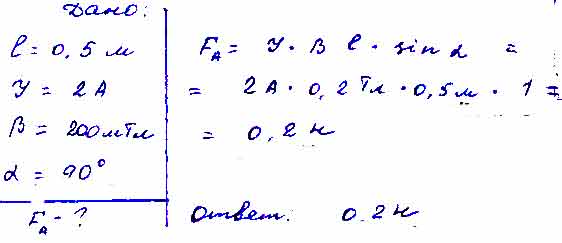 Дано:
l = 0,5 м
I = 2 А
B = 200 мТл
α = 90°
F_A - ?
F_A = I · B l · sin α =
= 2 А · 0,2 Тл · 0,5 м · 1 =
= 0,2 н
ответ: 0,2 н